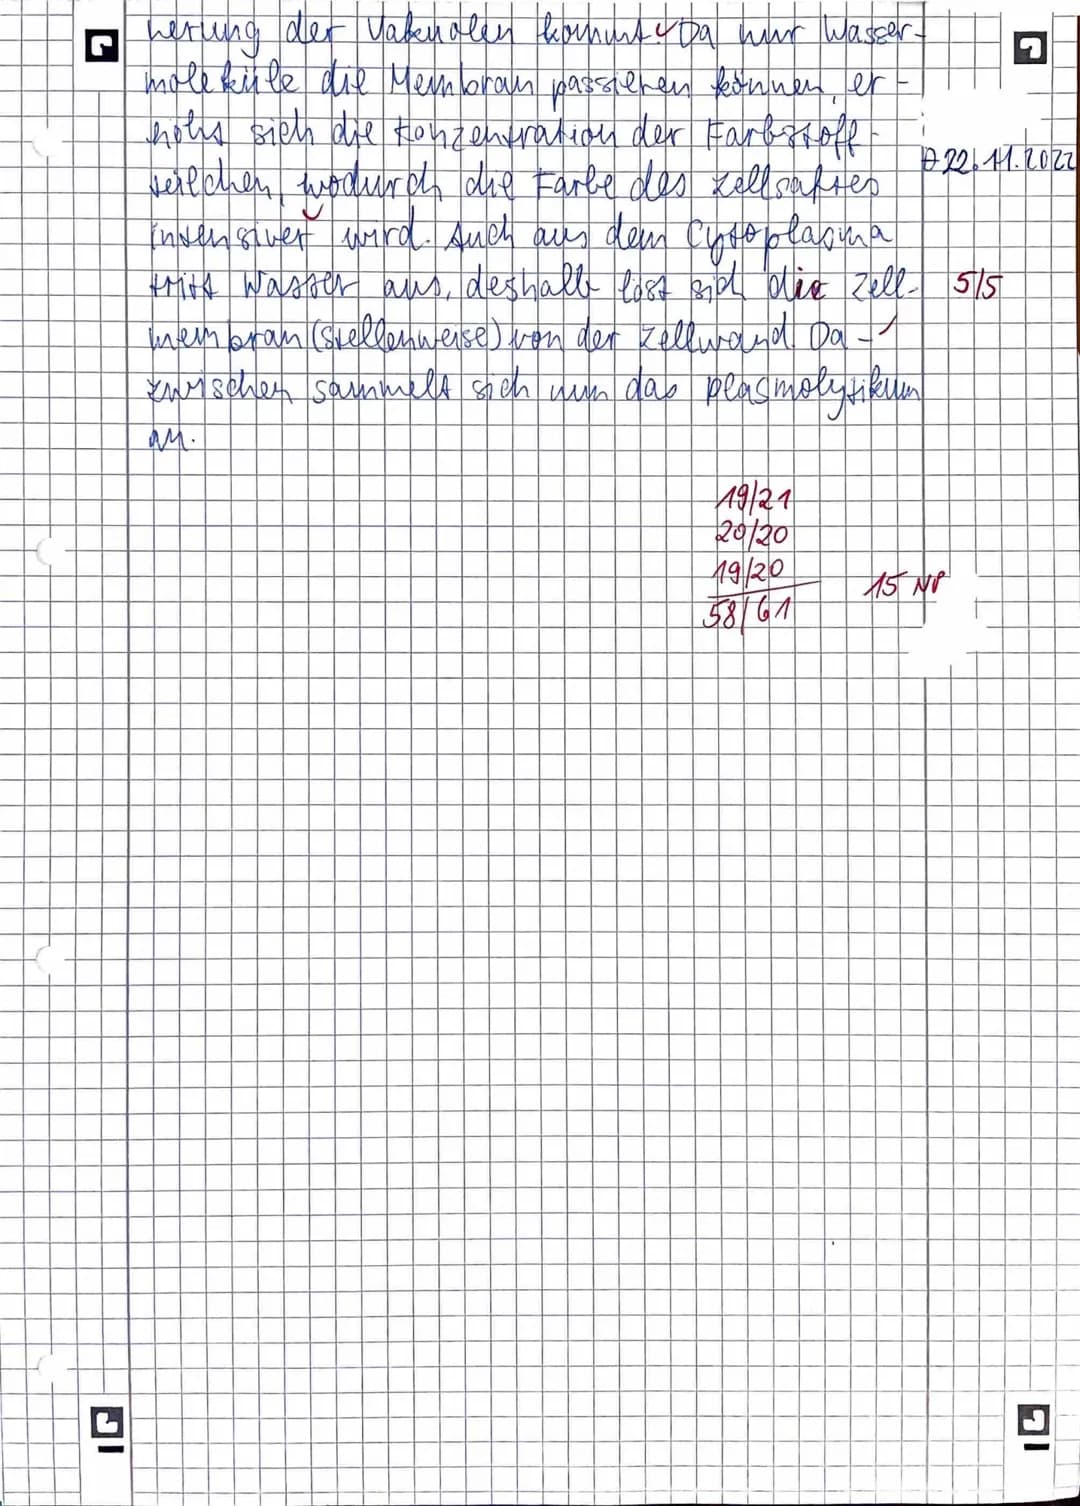 nerung der Vakuolen kommt✓Da nur Wasser-
moleküle die Membran passieren können, er-
höht sich die Konzentration der Farbstoff-
teilchen, wodurch die Farbe des Zellsaftes
intensiver wird. Auch aus dem Cytoplasma
tritt Wasser aus, deshalb löst sich die Zell-
membran (stellenweise) von der Zellwand. Da-
zwischen sammelt sich nun das Plasmolytikum
an.
22.11.2022
5/5
19/21
20/20
19/20
58/61
15 NP